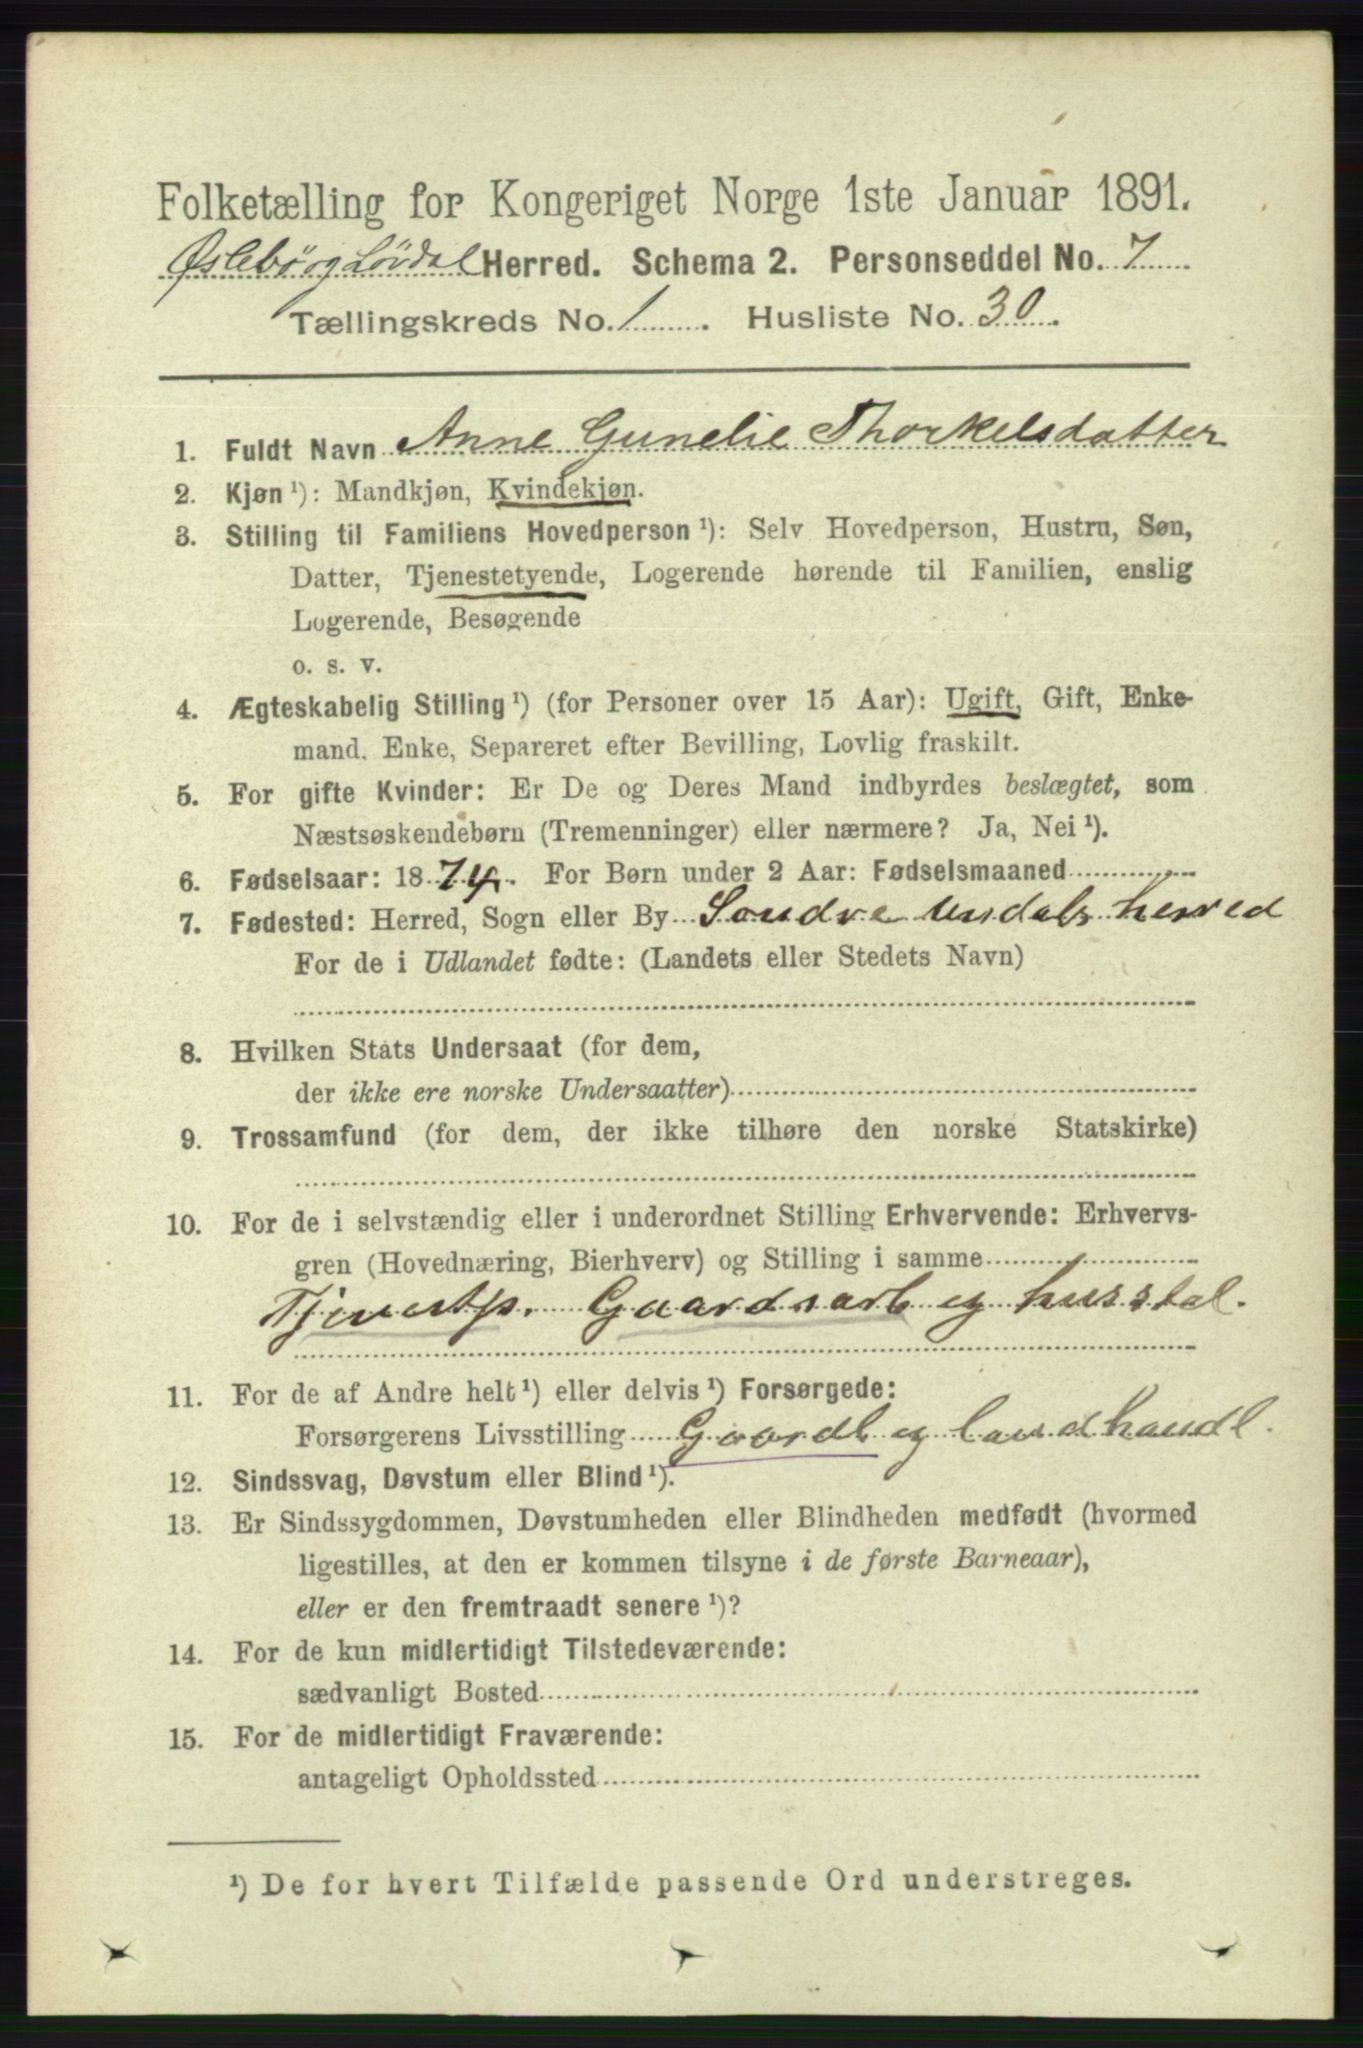 Folketælling for Kongeriget Norge 1ste Januar 1891.
Øslebø og Løvdal Herred. Schema 2. Personseddel No. 7
Tællingskreds No. 1. Husliste No. 30.
1. Fuldt Navn Anne Gunelie Thorkelsdatter
2. Kjøn ¹): Mandkjøn, Kvindekjøn.
3. Stilling til Familiens Hovedperson ¹): Selv Hovedperson, Hustru, Søn,
Datter, Tjenestetyende, Logerende hørende til Familien, enslig
Logerende, Besøgende
o. s. v.
4. Ægteskabelig Stilling ¹) (for Personer over 15 Aar): Ugift, Gift, Enke-
mand. Enke, Separeret efter Bevilling, Lovlig fraskilt.
5. For gifte Kvinder: Er De og Deres Mand indbyrdes beslægtet, som
Næstsøskendebørn (Tremenninger) eller nærmere? Ja, Nei ¹).
6. Fødselsaar: 1874. For Børn under 2 Aar: Fødselsmaaned
7. Fødested: Herred, Sogn eller By Søndre Undals herred
For de i Udlandet fødte: (Landets eller Stedets Navn)
8. Hvilken Stats Undersaat (for dem,
der ikke ere norske Undersaatter)
9. Trossamfund (for dem, der ikke tilhøre den norske Statskirke)
10. For de i selvstændig eller i underordnet Stilling Erhvervende: Erhvervs-
gren (Hovednæring, Bierhverv) og Stilling i samme
Tjenestp. Gaardsarb og husstel.
11. For de af Andre helt ¹) eller delvis ¹) Forsørgede:
Forsørgerens Livsstilling Gaardb og landhandl.
12. Sindssvag, Døvstum eller Blind ¹).
13. Er Sindssygdommen, Døvstumheden eller Blindheden medfødt (hvormed
ligestilles, at den er kommen tilsyne i de første Barneaar),
eller er den fremtraadt senere ¹)?
14. For de kun midlertidigt Tilstedeværende:
sædvanligt Bosted
15. For de midlertidigt Fraværende:
antageligt Opholdssted
¹) De for hvert Tilfælde passende Ord understreges.